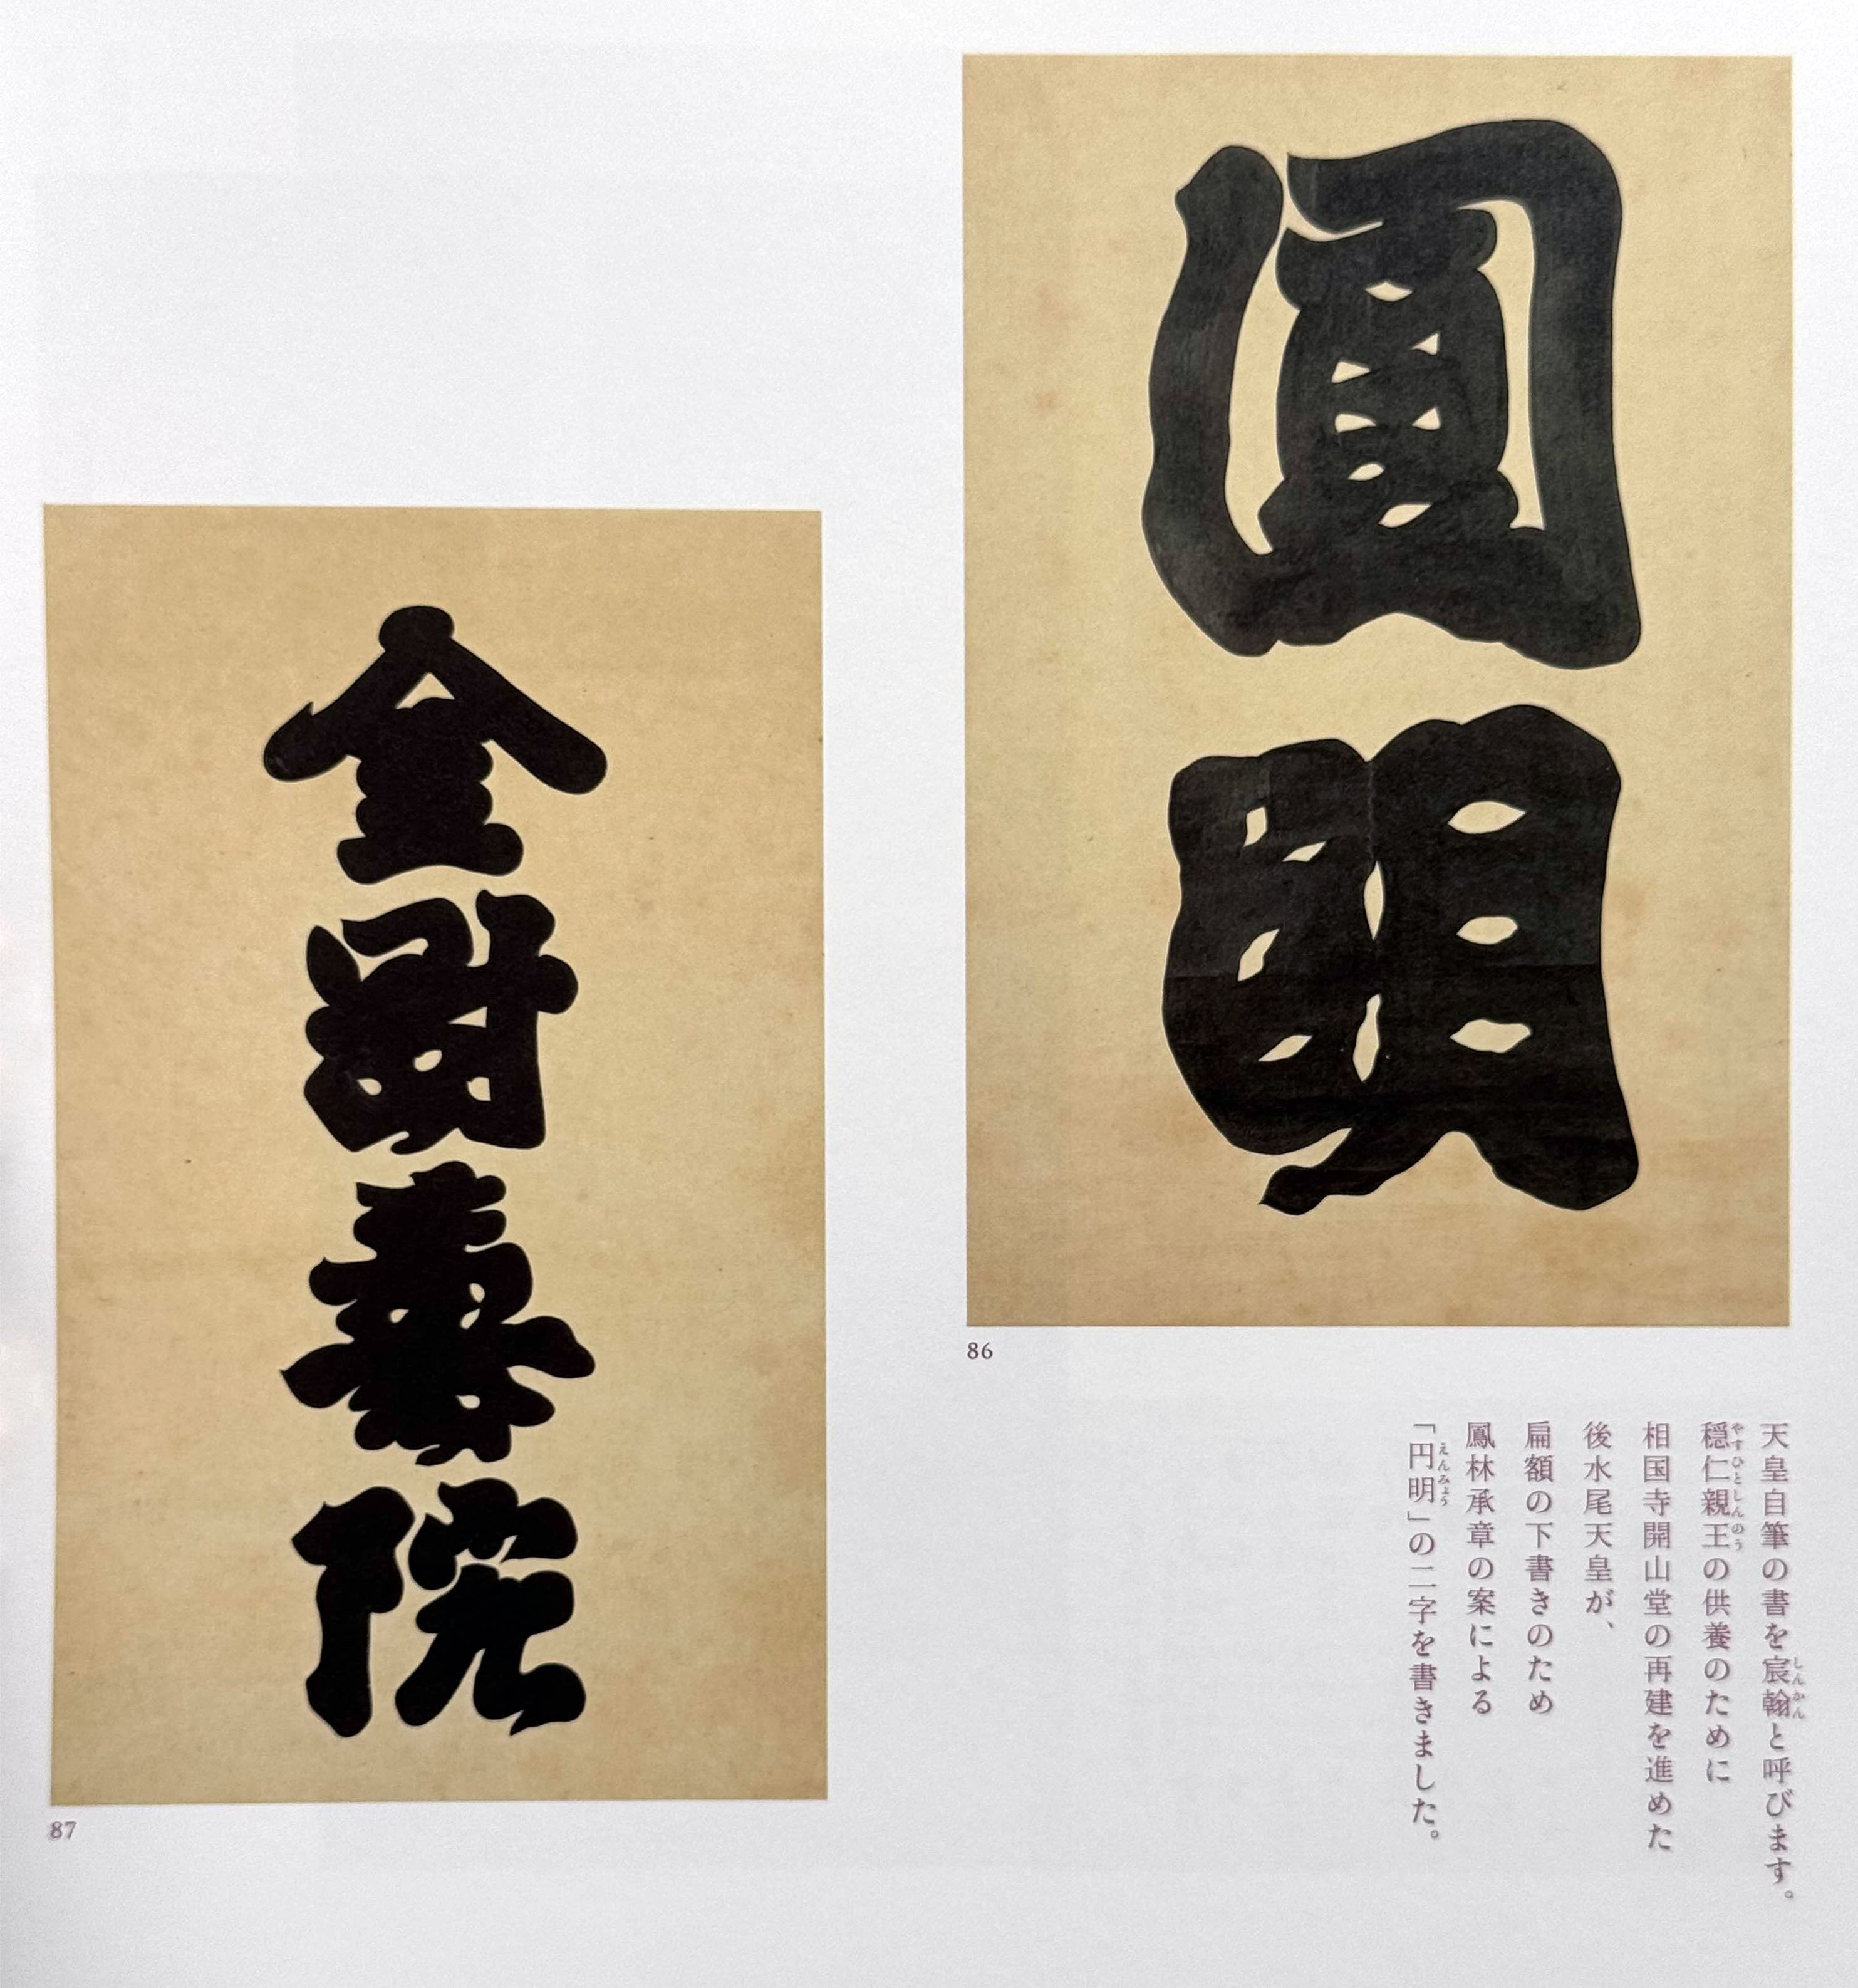 圓明
86
天皇自筆の書を宸翰と呼びます。
穏仁親王の供養のために
相国寺開山堂の再建を進めた
後水尾天皇が、
扁額の下書きのため
鳳林承章の案による
「円明」の二字を書きました。
金剛壽院
87